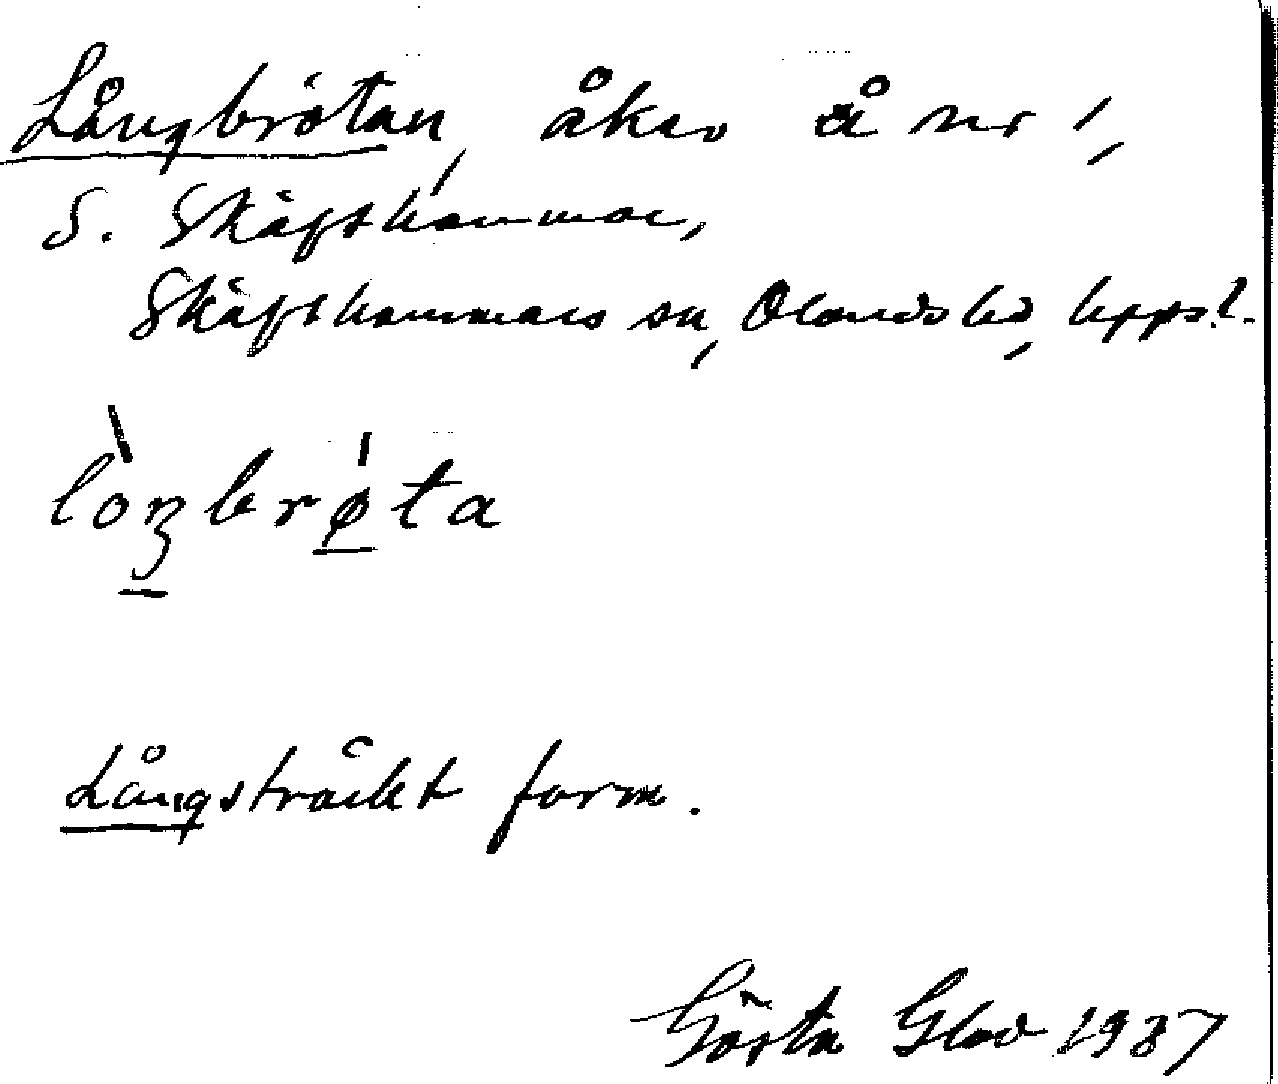 Långbrötan, åker å nr 1,
S. Skäfthammar,
Skäfthammars sn, Olands hd, Upps. l.
lòŋbrø̀ta
Långsträckt form.
Gösta 1937